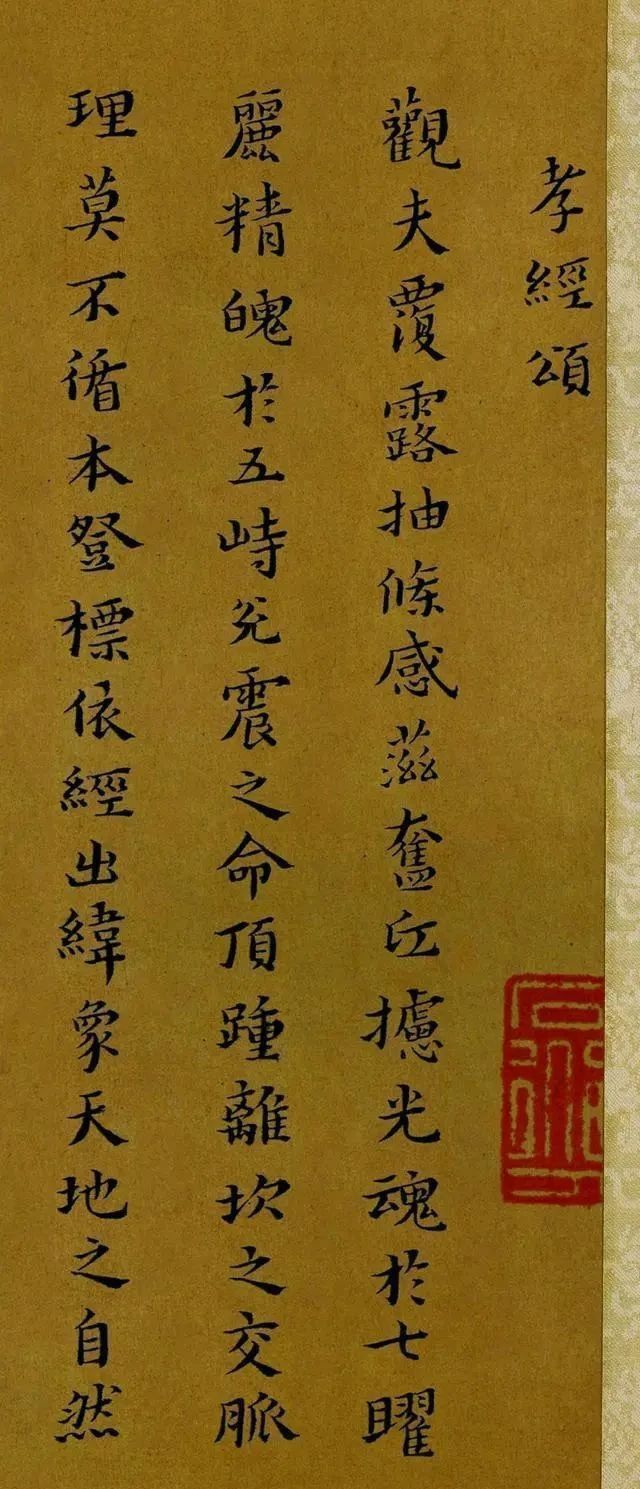 孝經頌
觀夫覆露抽條感滋奮攄光魂於七曜
麗精魄於五峙兌震之命頂踵離坎之交脈
理莫不循本登標依經出緯象天地之自然